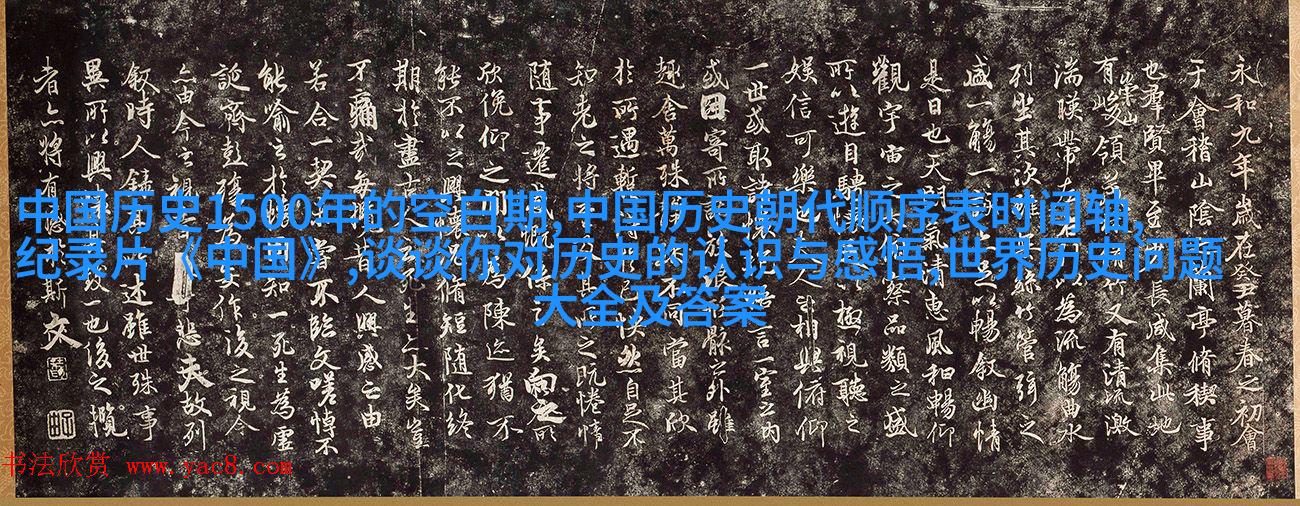 中国历史1500年的空白期,中国历史朝代顺序表时间轴,
纪录片《中国》,谈谈你对历史的认识与感悟,世界历史问题
大全及答案
永和九年歲在癸丑暮春之初會
于會稽山陰蘭亭脩稧事
也羣賢畢至長咸集此地
有崇山峻領茂竹又有清流激
湍暎帶右以為流觴曲水
列坐其次絲竹管弦之
盛一觴一以暢叙幽情
是日也天氣清惠風和暢仰
觀宇宙之察品類之盛
所以遊目騁極視聽之
娛信可樂也人之相與俯仰
一世或取諸言一室之內
或因寄所放浪骸之外雖
趣舍萬殊不同當其欣
於所遇蹔己怏然自足不
知老之將及其之既惓情
隨事遷感慨係之矣向之所
欣俛仰之以為陳迹猶不
能不以之興懷脩短隨化終
期於盡古死生亦大矣豈
不痛哉每昔人興感之由
若合一契嘗不臨文嗟悼不
能喻之於知一死生為虛
誕齊彭殤為作後之視今
亦由今之視悲夫故列
叙時人錄述雖世殊事
異所以興致一也後之攬
者亦將有感斯文
书法欣赏 www.yac8.com